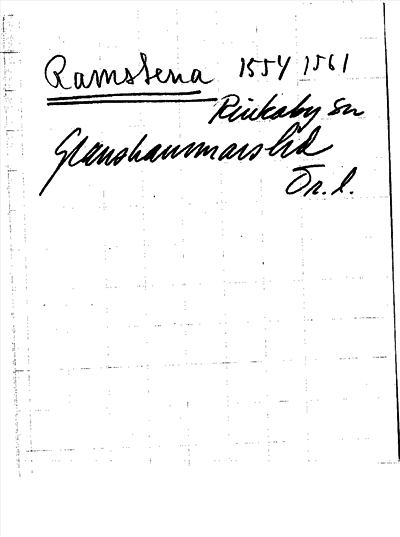 Ramstena 1554 1561
Rinkaby sn
Glanshammars hd
Ör. l.